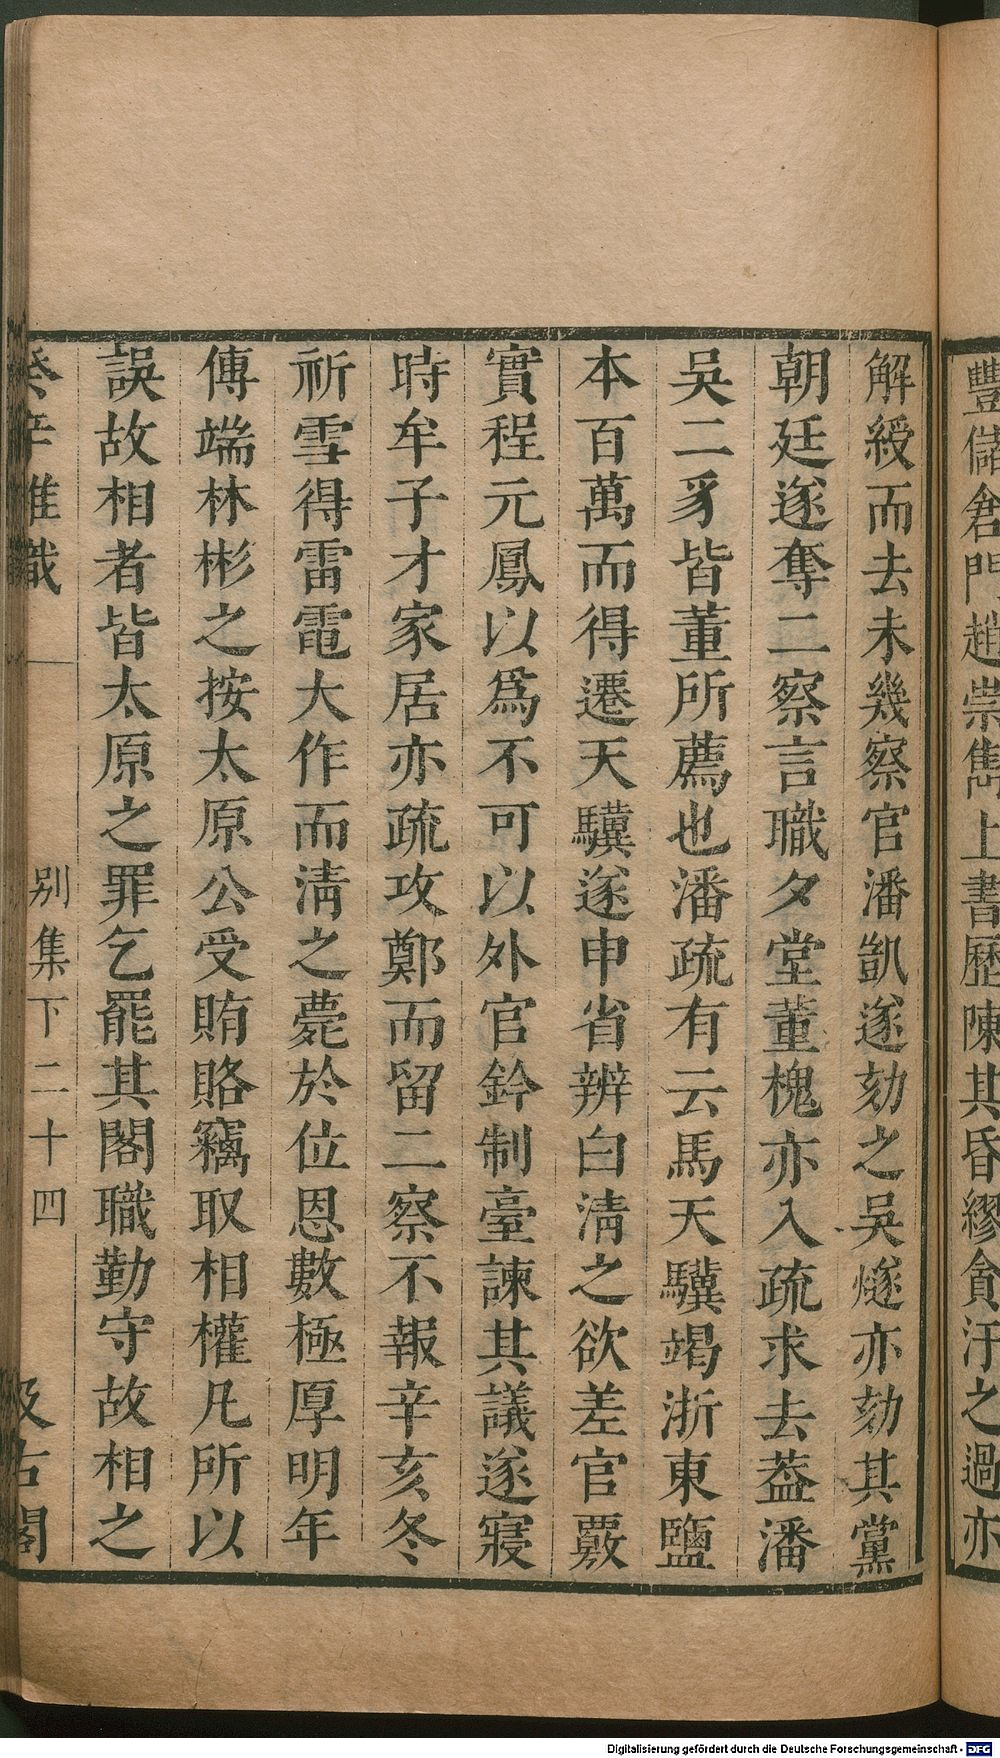 豐儲倉門趙崇雋上書歷陳其昏繆貪汙之過亦
解綬而去未幾察官潘凱遂劾之吳燧亦劾其黨
朝廷遂奪二察言職夕堂董槐亦入疏求去蓋潘
吳二豸皆董所薦也潘疏有云馬天驥竭浙東鹽
本百萬而得遷天驥遂申省辨白淸之欲差官覈
實程元鳳以爲不可以外官鈐制臺諫其議遂寢
時牟子才家居亦疏攻鄭而留二察不報辛亥冬
祈雪得雷電大作而淸之薨於位恩數極厚明年
傳端林彬之按太原公受賄賂竊取相權凡所以
誤故相者皆太原之罪乞罷其閣職勤守故相之
癸辛雜識 別集下二十四 汲古閣
Digitalisierung gefördert durch die Deutsche Forschungsgemeinschaft - DFG